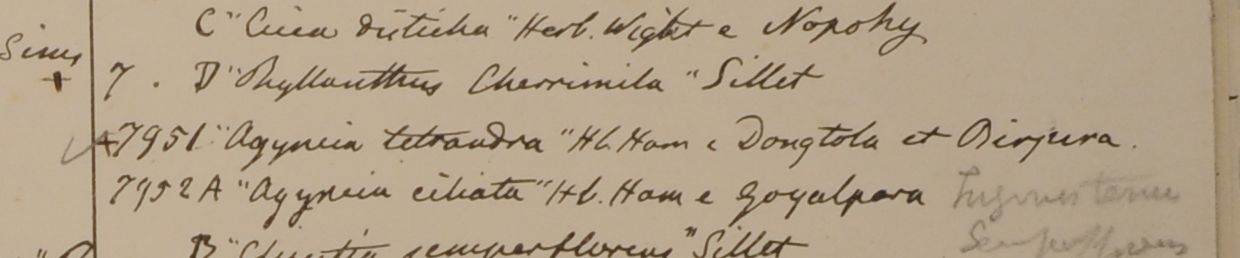 C "Cicca disticha" Herb. Wight e Nopohy
Sinus
7. D "Phyllanthus Cherrimila" Sillet
7951 "Agyneia tetrandra" Hb. Ham e Dongtola et Birjura.
7952 A "Agyneia ciliata" Hb. Ham e Goyalpara
B "Cluytia semperflorens" Sillet